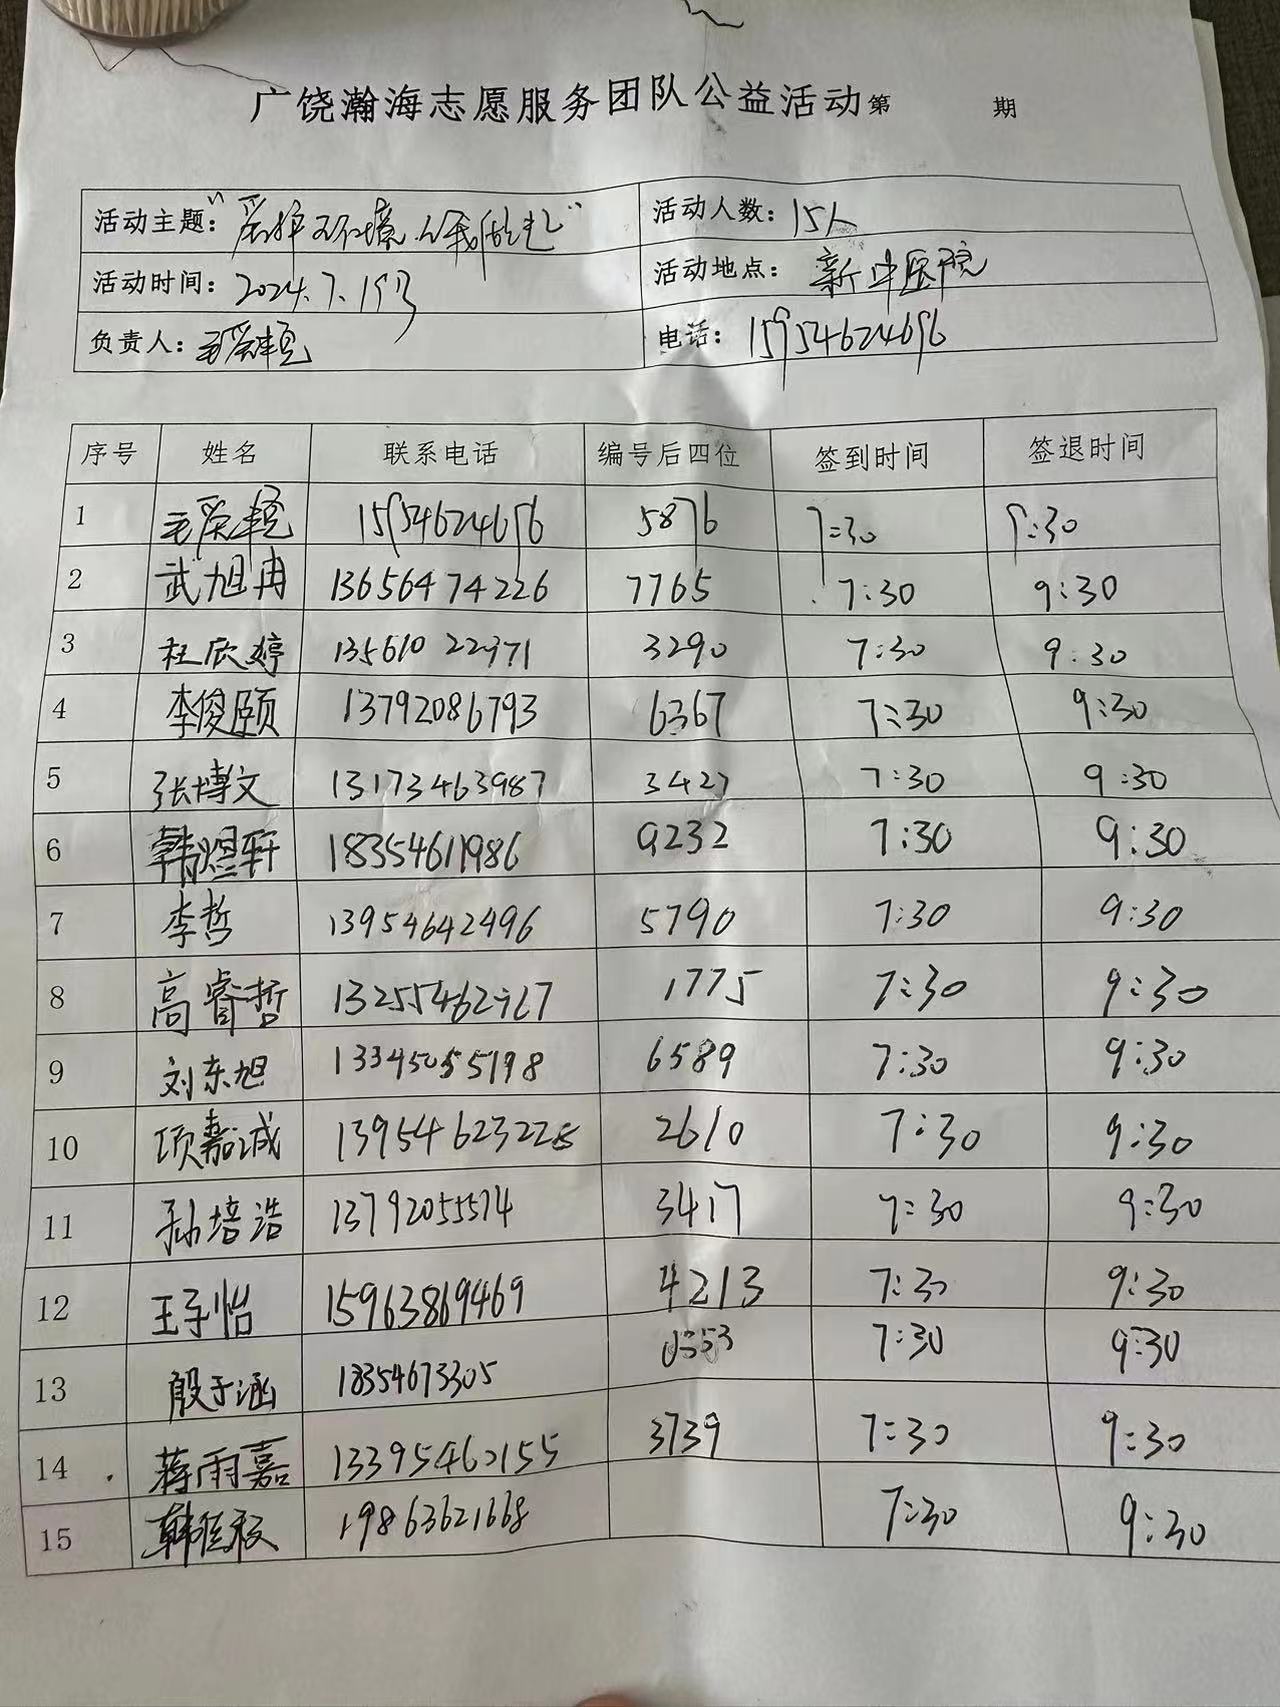 广饶瀚海志愿服务团队公益活动第 期
活动主题："爱护环境 从我做起" 活动人数：15人
活动时间：2024.7.19号 活动地点：新中医院
负责人：毛爱艳 电话：15954624696
序号 姓名 联系电话 编号后四位 签到时间 签退时间
1 毛爱艳 15954624696 5876 7:30 9:30
2 武旭冉 13656474226 7765 7:30 9:30
3 杜欣婷 13561022971 3290 7:30 9:30
4 李俊颐 13792086793 6367 7:30 9:30
5 张博文 13173463987 3427 7:30 9:30
6 韩煜轩 18354611986 9232 7:30 9:30
7 李哲 13954642496 5790 7:30 9:30
8 高睿哲 1775 7:30 9:30
9 刘东旭 13345055198 6589 7:30 9:30
10 项嘉诚 13954623228 2610 7:30 9:30
11 孙培浩 13792055574 3417 7:30 9:30
12 王子怡 15963869469 4213 7:30 9:30
13 殷于涵 18354673305 0353 7:30 9:30
14 蒋雨嘉 13395462155 3739 7:30 9:30
15 19863621668 7:30 9:30